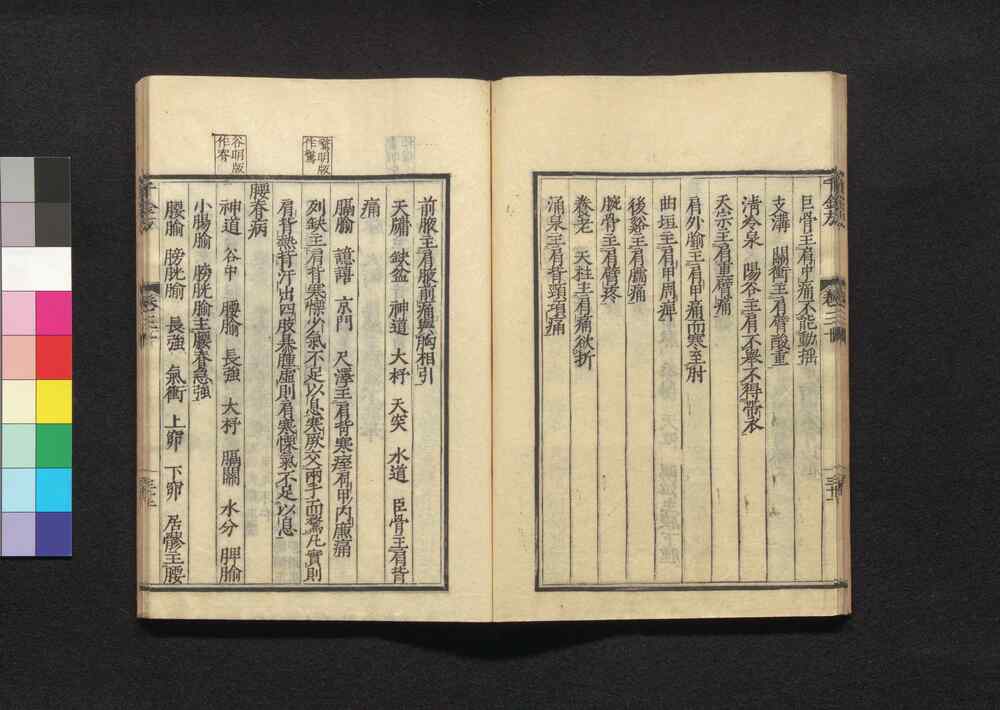 巨骨主肩中痛不能動搖
支溝 關衝主肩臂酸重
清冷泉 陽谷主肩不舉不得帶衣
天宗主肩重臂痛
肩外腧主肩胛痛而寒至肘
曲垣主肩胛周痺
後谿主肩臑痛
腕骨主肩臂疼
養老 天柱主肩痛欲折
涌泉主肩背頸項痛
前腋主肩腋前痛與胸相引
天牖 缺盆 神道 大杼 天突 水道 臣骨主肩背
痛
膈腧 譩譆 京門 尺澤主肩背寒痙肩甲內廉痛
列缺主肩背寒慄少氣不足以息寒厥交兩手而瞀凡實則
肩背熱背汗出四肢暴腫虛則肩寒慄氣不足以息
腰脊病
神道 谷中 腰腧 長強 大杼 膈關 水分 脾腧
小腸腧 膀胱腧主腰脊急強
腰腧 膀胱腧 長強 氣衝 上窌 下窌 居髎主腰
谷明版
作脊
千金方
卷三十